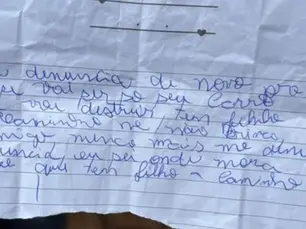 denuncia de novo pra
vai ser so seu carro
vai destruir tem filho
caminho né não brinca
migo nunca mais me
eu sei onde mora
que tem filho a caminho